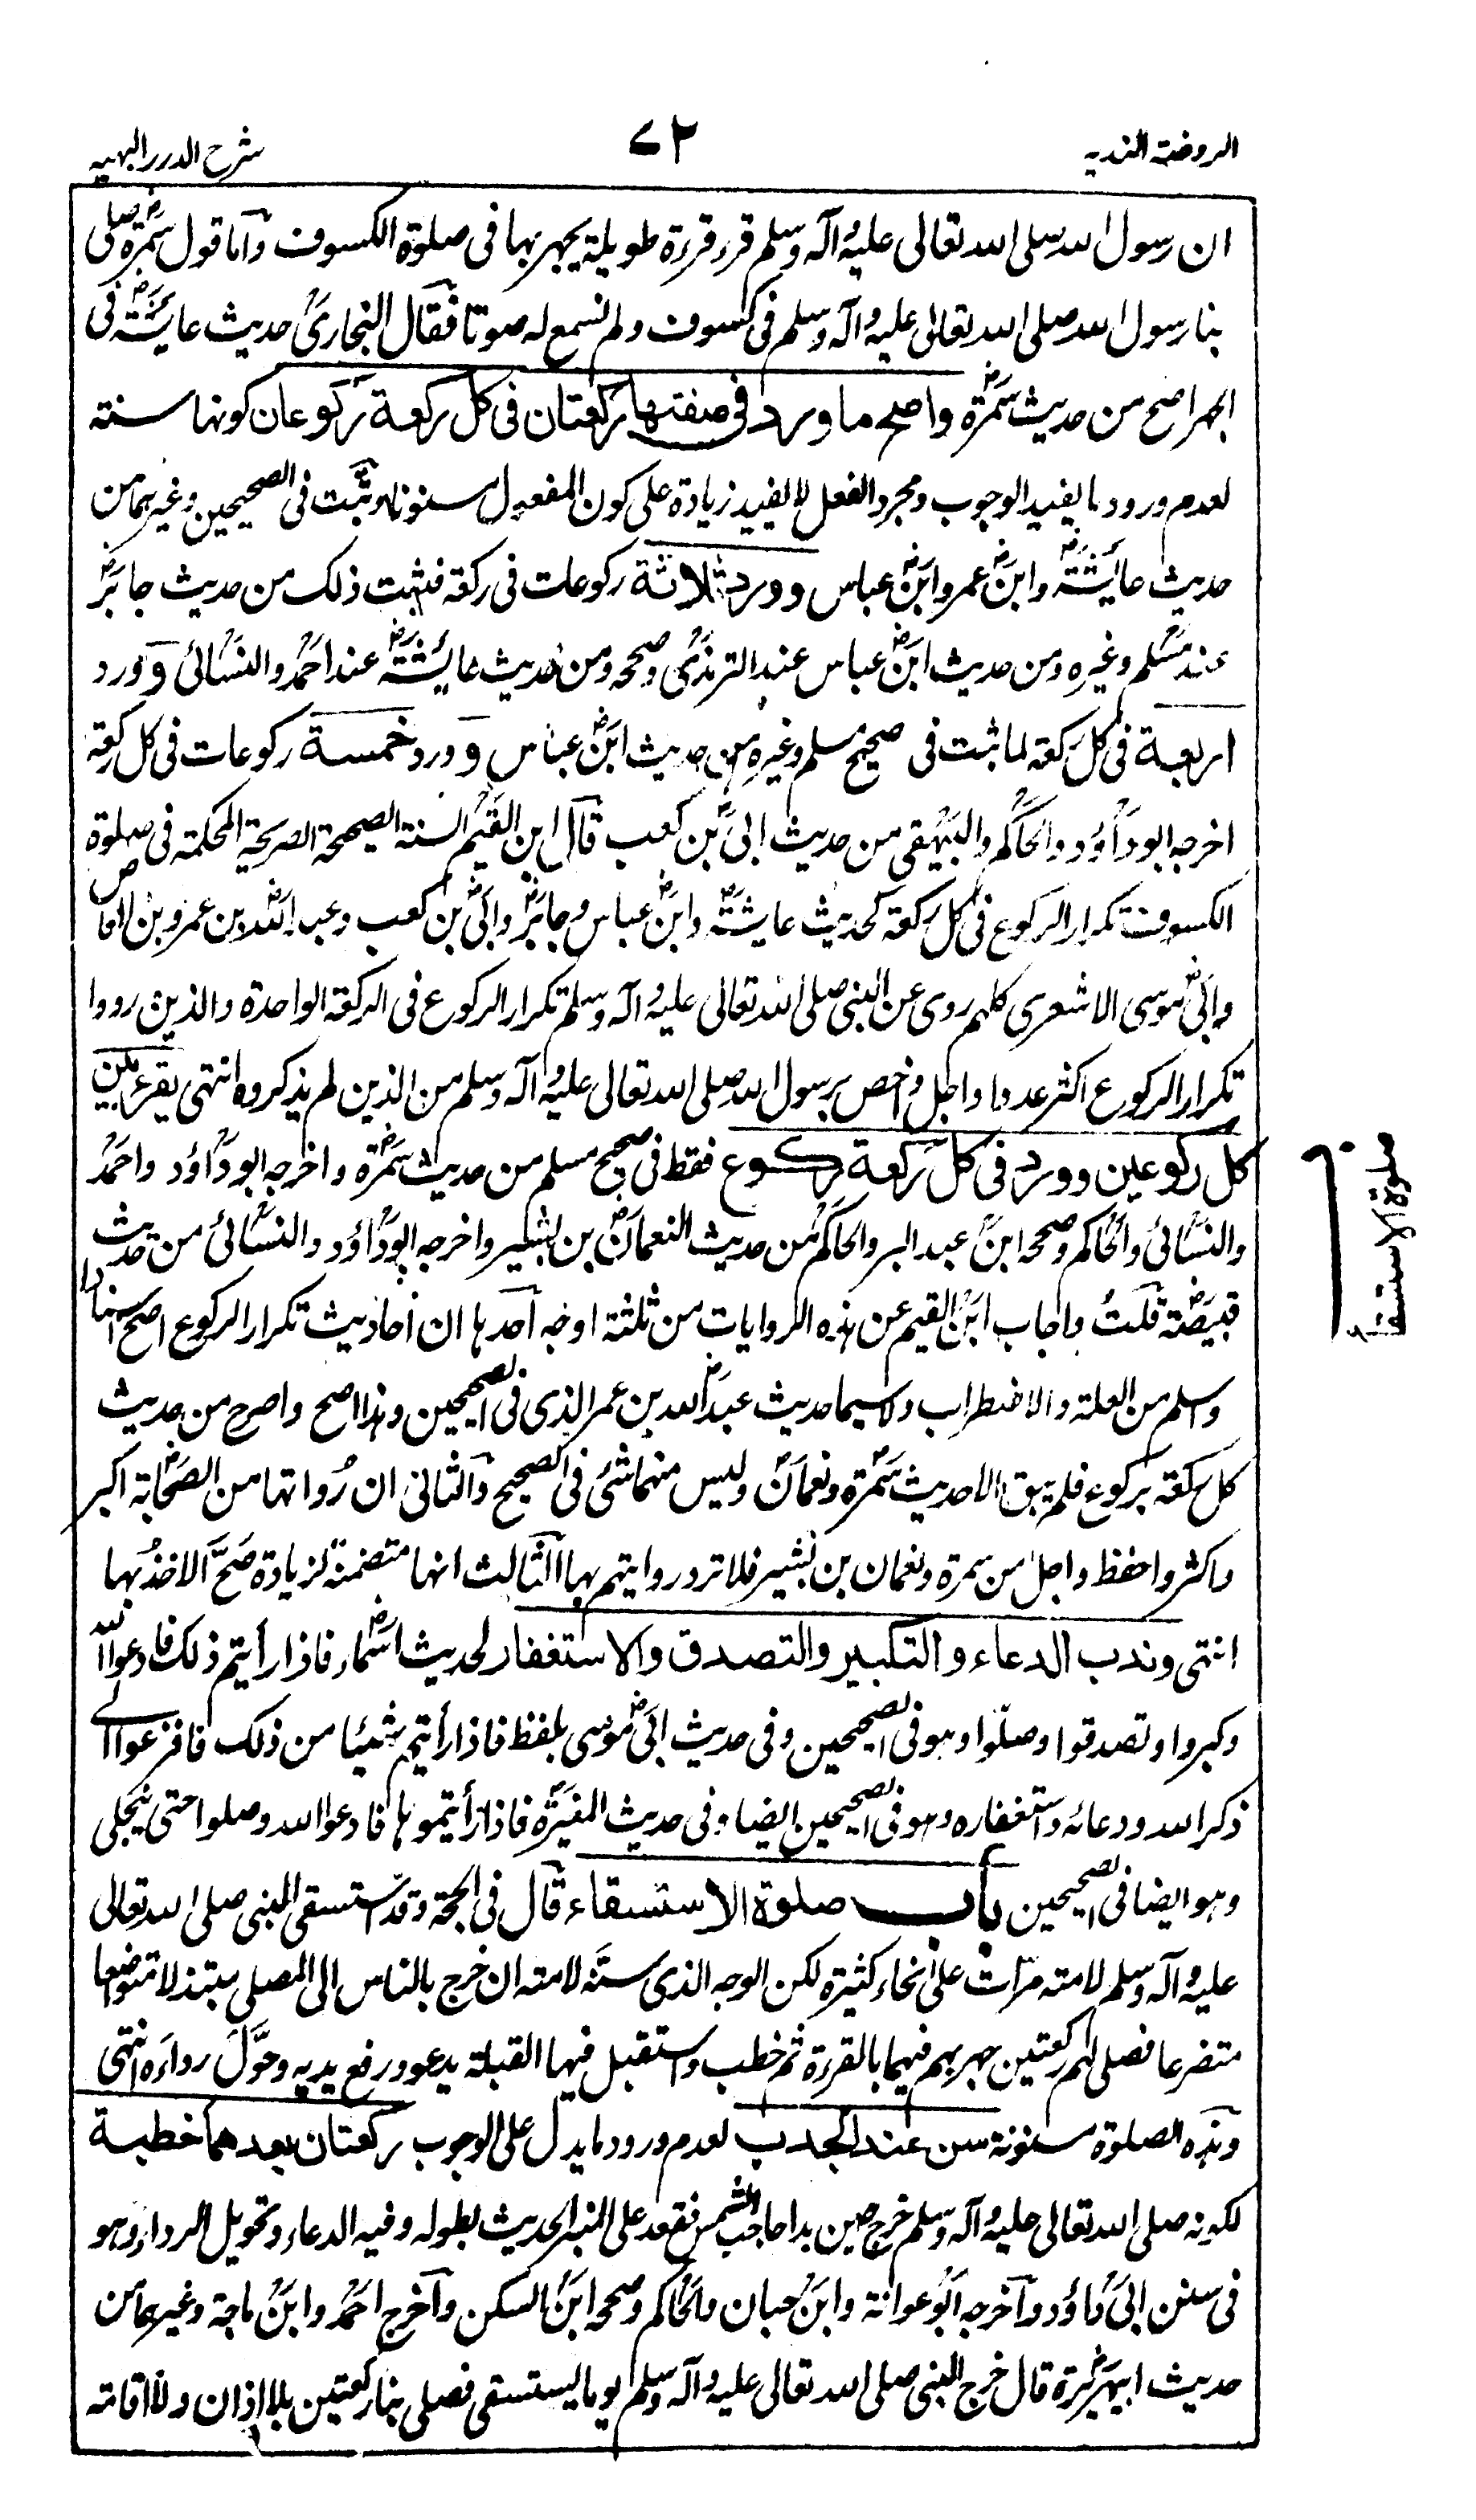 الروضة الندیہ
۷۲
شرح الدرر البہیہ
ان رسول اللہ صلی اللہ تعالی علیہ وآلہ وسلم قرء قرءۃ طویلۃ یجہر بہا فی صلوۃ الکسوف وأما قول سمرۃ صلی
بنا رسول اللہ صلی اللہ تعالی علیہ وآلہ وسلم فی کسوف ولم نسمع لہ صوتا فقال البخاری حدیث عایشۃ فی
الجہر اصح من حدیث سمرۃ واصح ما ورد فی صفتہا رکعتان فی کل رکعۃ رکوعان کونہا سنتہ
لعدم ورود ما یفید الوجوب ومجرد الفعل لا یفید زیادۃ علی کون المفعول مسنونا وثبت فی الصحیحین وغیرہما من
حدیث عایشۃ وابن عمر وابن عباس وورد ثلاثۃ رکوعات فی رکعۃ فثبت ذلک من حدیث جابر
عند مسلم وغیرہ ومن حدیث ابن عباس عند الترمذی وصححہ ومن حدیث عایشۃ عند احمد والنسائی وورد
اربعۃ فی کل رکعۃ لما ثبت فی صحیح مسلم وغیرہ من حدیث ابن عباس وورد خمسۃ رکوعات فی کل رکعۃ
اخرجہ ابو داؤد والحاکم والبیہقی من حدیث ابی بن کعب قال ابن القیم السنۃ الصحیحۃ الصریحۃ المحکمۃ فی صلوۃ
الکسوف تکرار الرکوع فی کل رکعۃ لحدیث عایشۃ وابن عباس وجابر وابی بن کعب وعبد اللہ بن عمرو بن العاص
وابی موسی الاشعری کلہم روی عن النبی صلی اللہ تعالی علیہ وآلہ وسلم تکرار الرکوع فی الرکعۃ الواحدۃ والذین رووا
تکرار الرکوع اکثر عددا واجل واخص برسول اللہ صلی اللہ تعالی علیہ وآلہ وسلم من الذین لم یذکروہ انتہی یقرء بین
کل رکوعین وورد فی کل رکعۃ رکوع فقط فی صحیح مسلم من حدیث سمرۃ واخرجہ ابو داؤد واحمد
والنسائی والحاکم وصححہ ابن عبد البر والحاکم من حدیث النعمان بن بشیر واخرجہ ابو داؤد والنسائی من حدیث
قبیصۃ قلت واجاب ابن القیم عن ہذہ الروایات من ثلثۃ اوجہ احدہا ان احادیث تکرار الرکوع اصح اسنادا
واسلم من العلۃ والاضطراب ولاسیما حدیث عبد اللہ بن عمر الذی فی الصحیحین وہذا اصح واصرح من حدیث
کل رکعۃ برکوع فلم یبق الا حدیث سمرۃ ونعمان ولیس منہما شئ فی الصحیح والثانی ان رواتہا من الصحابۃ اکبر
واکثر واحفظ واجل من سمرۃ ونعمان بن بشیر فلا ترد روایتہم بہا الثالث انہا متضمنۃ لزیادۃ صح الاخذ بہا
انتہی وندب الدعاء والتکبیر والتصدق والاستغفار لحدیث اسماء فاذا رأیتم ذلک فادعوا اللہ
وکبروا وتصدقوا وصلوا وہو فی الصحیحین وفی حدیث ابی موسی بلفظ فاذا رأیتم شیئا من ذلک فافزعوا الی
ذکر اللہ ودعائہ واستغفارہ وہو فی الصحیحین ایضا وفی حدیث المغیرۃ فاذا رأیتموہا فادعوا اللہ وصلوا حتی ینجلی
وہو ایضا فی الصحیحین باب صلوۃ الاستسقاء قال فی الحجۃ وقد استسقی النبی صلی اللہ تعالی
علیہ وآلہ وسلم لامتہ مرات علی انحاء کثیرۃ لکن الوجہ الذی سنہ لامتہ ان خرج بالناس الی المصلی مبتذلا متواضعا
متضرعا فصلی لہم رکعتین جہر بہم فیہما بالقرءۃ ثم خطب واستقبل فیہا القبلۃ یدعو ورفع یدیہ وحوّل رداءہ انتہی
وہذہ الصلوۃ مسنونۃ سن عند الجدب لعدم ورود ما یدل علی الوجوب رکعتان بعدھما خطبۃ
لکونہ صلی اللہ تعالی علیہ وآلہ وسلم خرج حین بدا حاجب الشمس فقعد علی المنبر الحدیث بطولہ وفیہ الدعاء وتحویل الرداء وہو
فی سنن ابی داؤد وأخرجہ ابو عوانۃ وابن حبان والحاکم وصححہ ابن السکن وأخرج احمد وابن ماجۃ وغیرہما من
حدیث ابیہریرۃ قال خرج النبی صلی اللہ تعالی علیہ وآلہ وسلم یوما یستسقی فصلی بنا رکعتین بلا اذان ولا اقامتہ
صلوۃ الاستسقاء